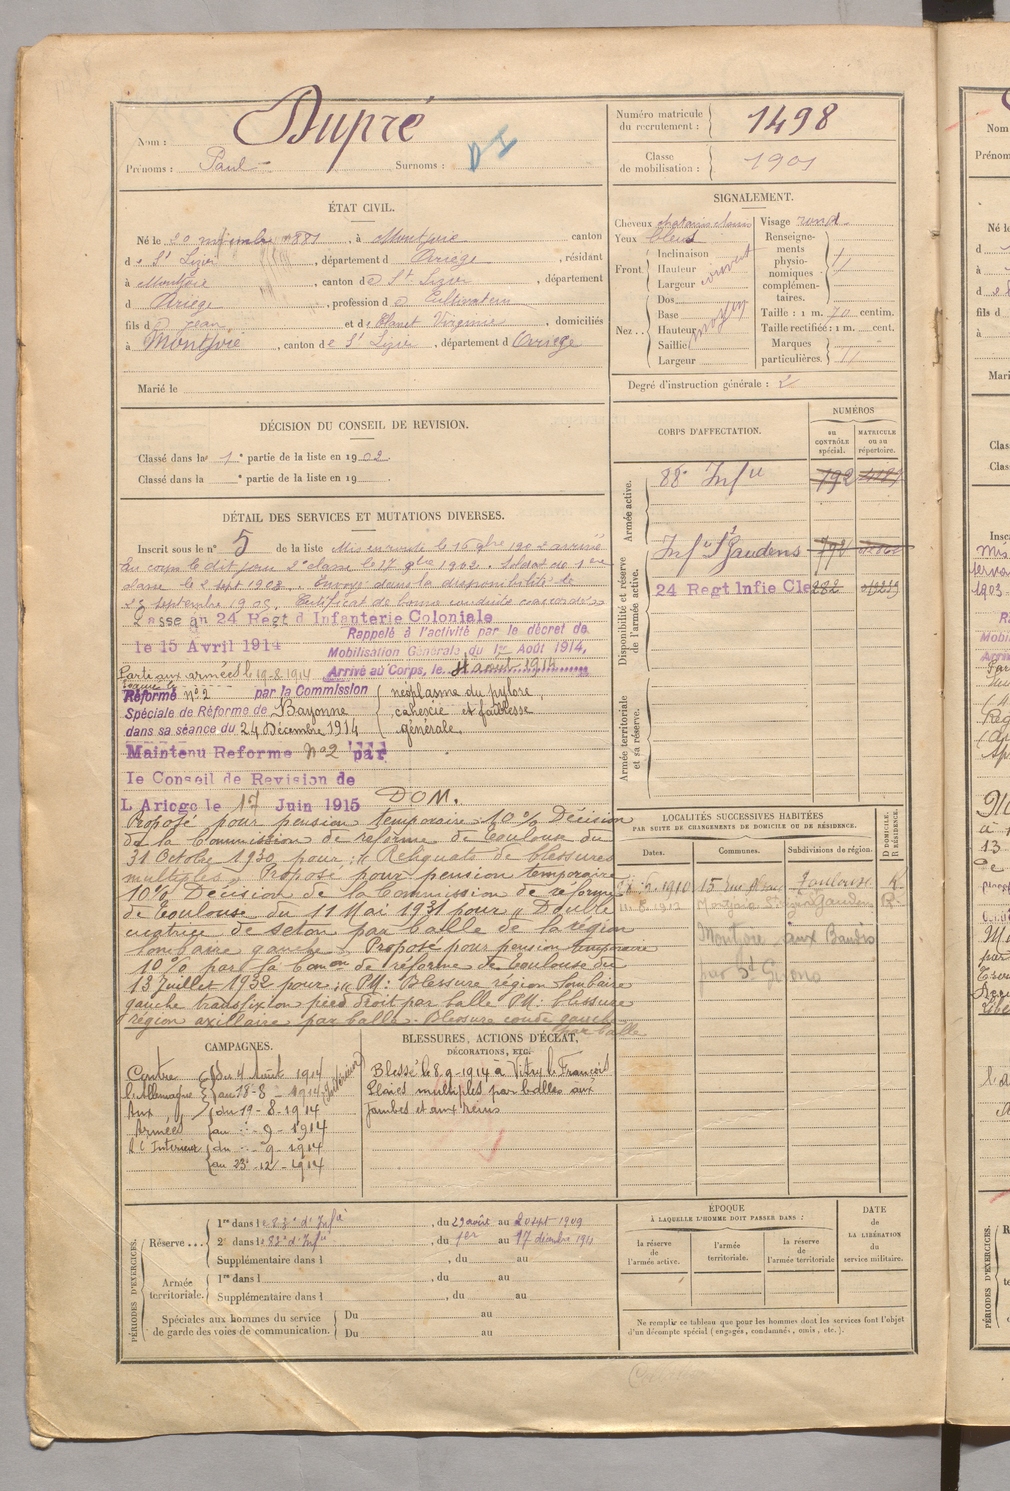 Nom : Dupré
Prénoms : Paul Surnoms :
Numéro matricule du recrutement : 1498
Classe de mobilisation : 1901
ÉTAT CIVIL.
Né le 20 1881, à Montjoie canton
de St Lizier, département d Ariège, résidant
à Montjoie, canton de St Lizier, département
d Ariège, profession de Cultivateur
fils de Jean et de Virginie, domiciliés
à Montjoie, canton de St Lizier, département d Ariège
Marié le
SIGNALEMENT.
Cheveux chatains clairs Visage rond
Yeux bleus
Front : Inclinaison
Hauteur
Largeur
Nez : Dos
Base
Hauteur moyen
Saillie
Largeur
Renseignements physionomiques complémentaires. //
Taille : 1 m. 70 centim.
Taille rectifiée : 1 m. cent.
Marques particulières. //
Degré d'instruction générale : 2
DÉCISION DU CONSEIL DE REVISION.
Classé dans la 1e partie de la liste en 1902.
Classé dans la e partie de la liste en 19 .
CORPS D'AFFECTATION.
NUMÉROS
au CONTRÔLE spécial.
MATRICULE ou au répertoire.
Armée active.
88e Infie 792
Disponibilité et réserve de l'armée active.
Infie St Gaudens 792
24 Regt Infie Cle 282
Armée territoriale et sa réserve.
DÉTAIL DES SERVICES ET MUTATIONS DIVERSES.
Inscrit sous le n° 5 de la liste Mis en route le 16 9bre 1902 arrivé
au corps le dit jour 2e classe le 17 9bre 1902. Soldat de 1ère
classe le 2 sept 1903. Envoyé dans la disponibilité le
23 septembre 1905. Certificat de bonne conduite accordé
Passe au 24 Regt d Infanterie Coloniale
le 15 Avril 1914
Rappelé à l'activité par le décret de
Mobilisation Générale du 1er Août 1914,
Arrivé au Corps, le 4 août 1914
Parti aux armées le 19-8-1914
Réformé N°2 par la Commission
Spéciale de Réforme de Bayonne
dans sa séance du 24 Décembre 1914
néoplasme du pylore,
cahexie et faiblesse
générale.
Maintenu Reforme N°2 par
le Conseil de Revision de
L Ariege le 17 Juin 1915 DOM.
Proposé pour pension temporaire 10% Décision
de la Commission de réforme de Toulouse du
31 Octobre 1930 pour : "Reliquats de blessures
multiples". Proposé pour pension temporaire
10% Décision de la Commission de réforme
de Toulouse du 11 Mai 1931 pour "Double
cicatrice de seton par balle de la région
lombaire gauche". Proposé pour pension temporaire
10% par la Comon de réforme de Toulouse du
13 Juillet 1932 pour : "PM: Blessure région lombaire
gauche transfixion pied droit par balle PM: blessure
région axillaire par balle. Blessure coude gauche
par balle
LOCALITÉS SUCCESSIVES HABITÉES
PAR SUITE DE CHANGEMENTS DE DOMICILE OU DE RÉSIDENCE.
Dates. Communes. Subdivisions de région. D DOMICILE. R RÉSIDENCE.
1910 15 rue Toulouse R.
1912 Montjoie St Gaudens R.
Montjoie, aux Baudis
par St Girons
CAMPAGNES.
Contre du 4 Août 1914
l'Allemagne au 18-8-1914 (Intérieur)
Aux du 19-8-1914
Armées au -9-1914
A l'Intérieur du -9-1914
au 23-12-1914
BLESSURES, ACTIONS D'ÉCLAT,
DÉCORATIONS, ETC.
Blessé le 8.9-1914 à Vitry le François
Plaies multiples par balles aux
Jambes et aux reins
PÉRIODES D'EXERCICES.
Réserve... 1re dans le 83e d'Infie, du 29 août au 20 sept 1909
2e dans le 83e d'Infie, du 1er au 17 décembre 1911
Supplémentaire dans l , du au
Armée territoriale. 1re dans l , du au
Supplémentaire dans l , du au
Spéciales aux hommes du service
de garde des voies de communication. Du au
Du au
ÉPOQUE
À LAQUELLE L'HOMME DOIT PASSER DANS :
la réserve de l'armée active.
l'armée territoriale.
la réserve de l'armée territoriale
DATE de LA LIBÉRATION du service militaire.
Ne remplir ce tableau que pour les hommes dont les services font l'objet
d'un décompte spécial (engagés, condamnés, omis, etc.).